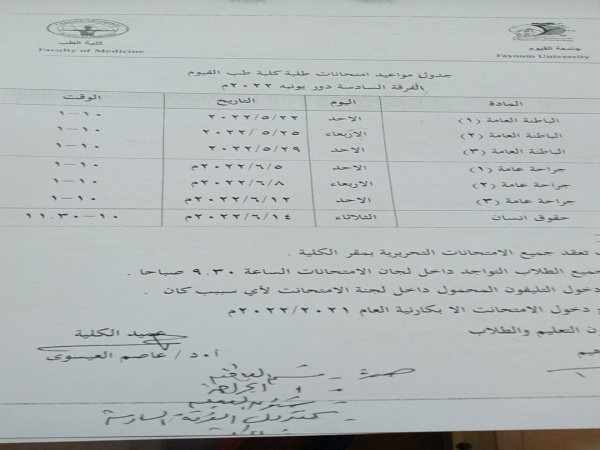 جامعة الفيوم
Fayoum University
كلية الطب
Faculty of Medicine
جدول مواعيد امتحانات طلبة كلية طب الفيوم
الفرقة السادسة دور يونيه ٢٠٢٢م
المادة اليوم التاريخ الوقت
الباطنة العامة (١) الاحد ٢٠٢٢/٥/٢٢ ١٠-١
الباطنة العامة (٢) الاربعاء ٢٠٢٢/٥/٢٥ ١٠-١
الباطنة العامة (٣) الاحد ٢٠٢٢/٥/٢٩ ١٠-١
جراحة عامة (١) الاحد ٢٠٢٢/٦/٥م ١٠-١
جراحة عامة (٢) الاربعاء ٢٠٢٢/٦/٨م ١٠-١
جراحة عامة (٣) الاحد ٢٠٢٢/٦/١٢م ١٠-١
حقوق انسان الثلاثاء ٢٠٢٢/٦/١٤م ١٠-١١.٣٠
تعقد جميع الامتحانات التحريرية بمقر الكلية .
جميع الطلاب التواجد داخل لجان الامتحانات الساعة ٩.٣٠ صباحا .
دخول التليفون المحمول داخل لجنة الامتحانت لأي سيبب كان .
دخول الامتحانت الا بكارنية العام ٢٠٢٢/٢٠٢١م
ن التعليم والطلاب
عميد الكلية
هيم
أ.د/ عاصم العيسوى
صورة